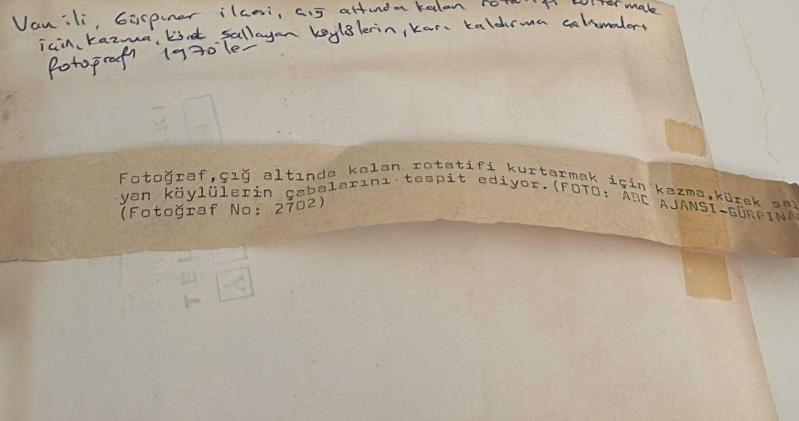 Van ili, Gürpınar ilçesi, çığ altında kalan rotatifi kurtarmak
için, kazma, kürek sallayan köylülerin, karı kaldırma çalışmaları
fotoğrafı 1970'ler
Fotoğraf,çığ altında kalan rotatifi kurtarmak için kazma,kürek sal
yan köylülerin çabalarını tespit ediyor.(FOTO: ABC AJANSI-GÜRPINA
(Fotoğraf No: 2702)